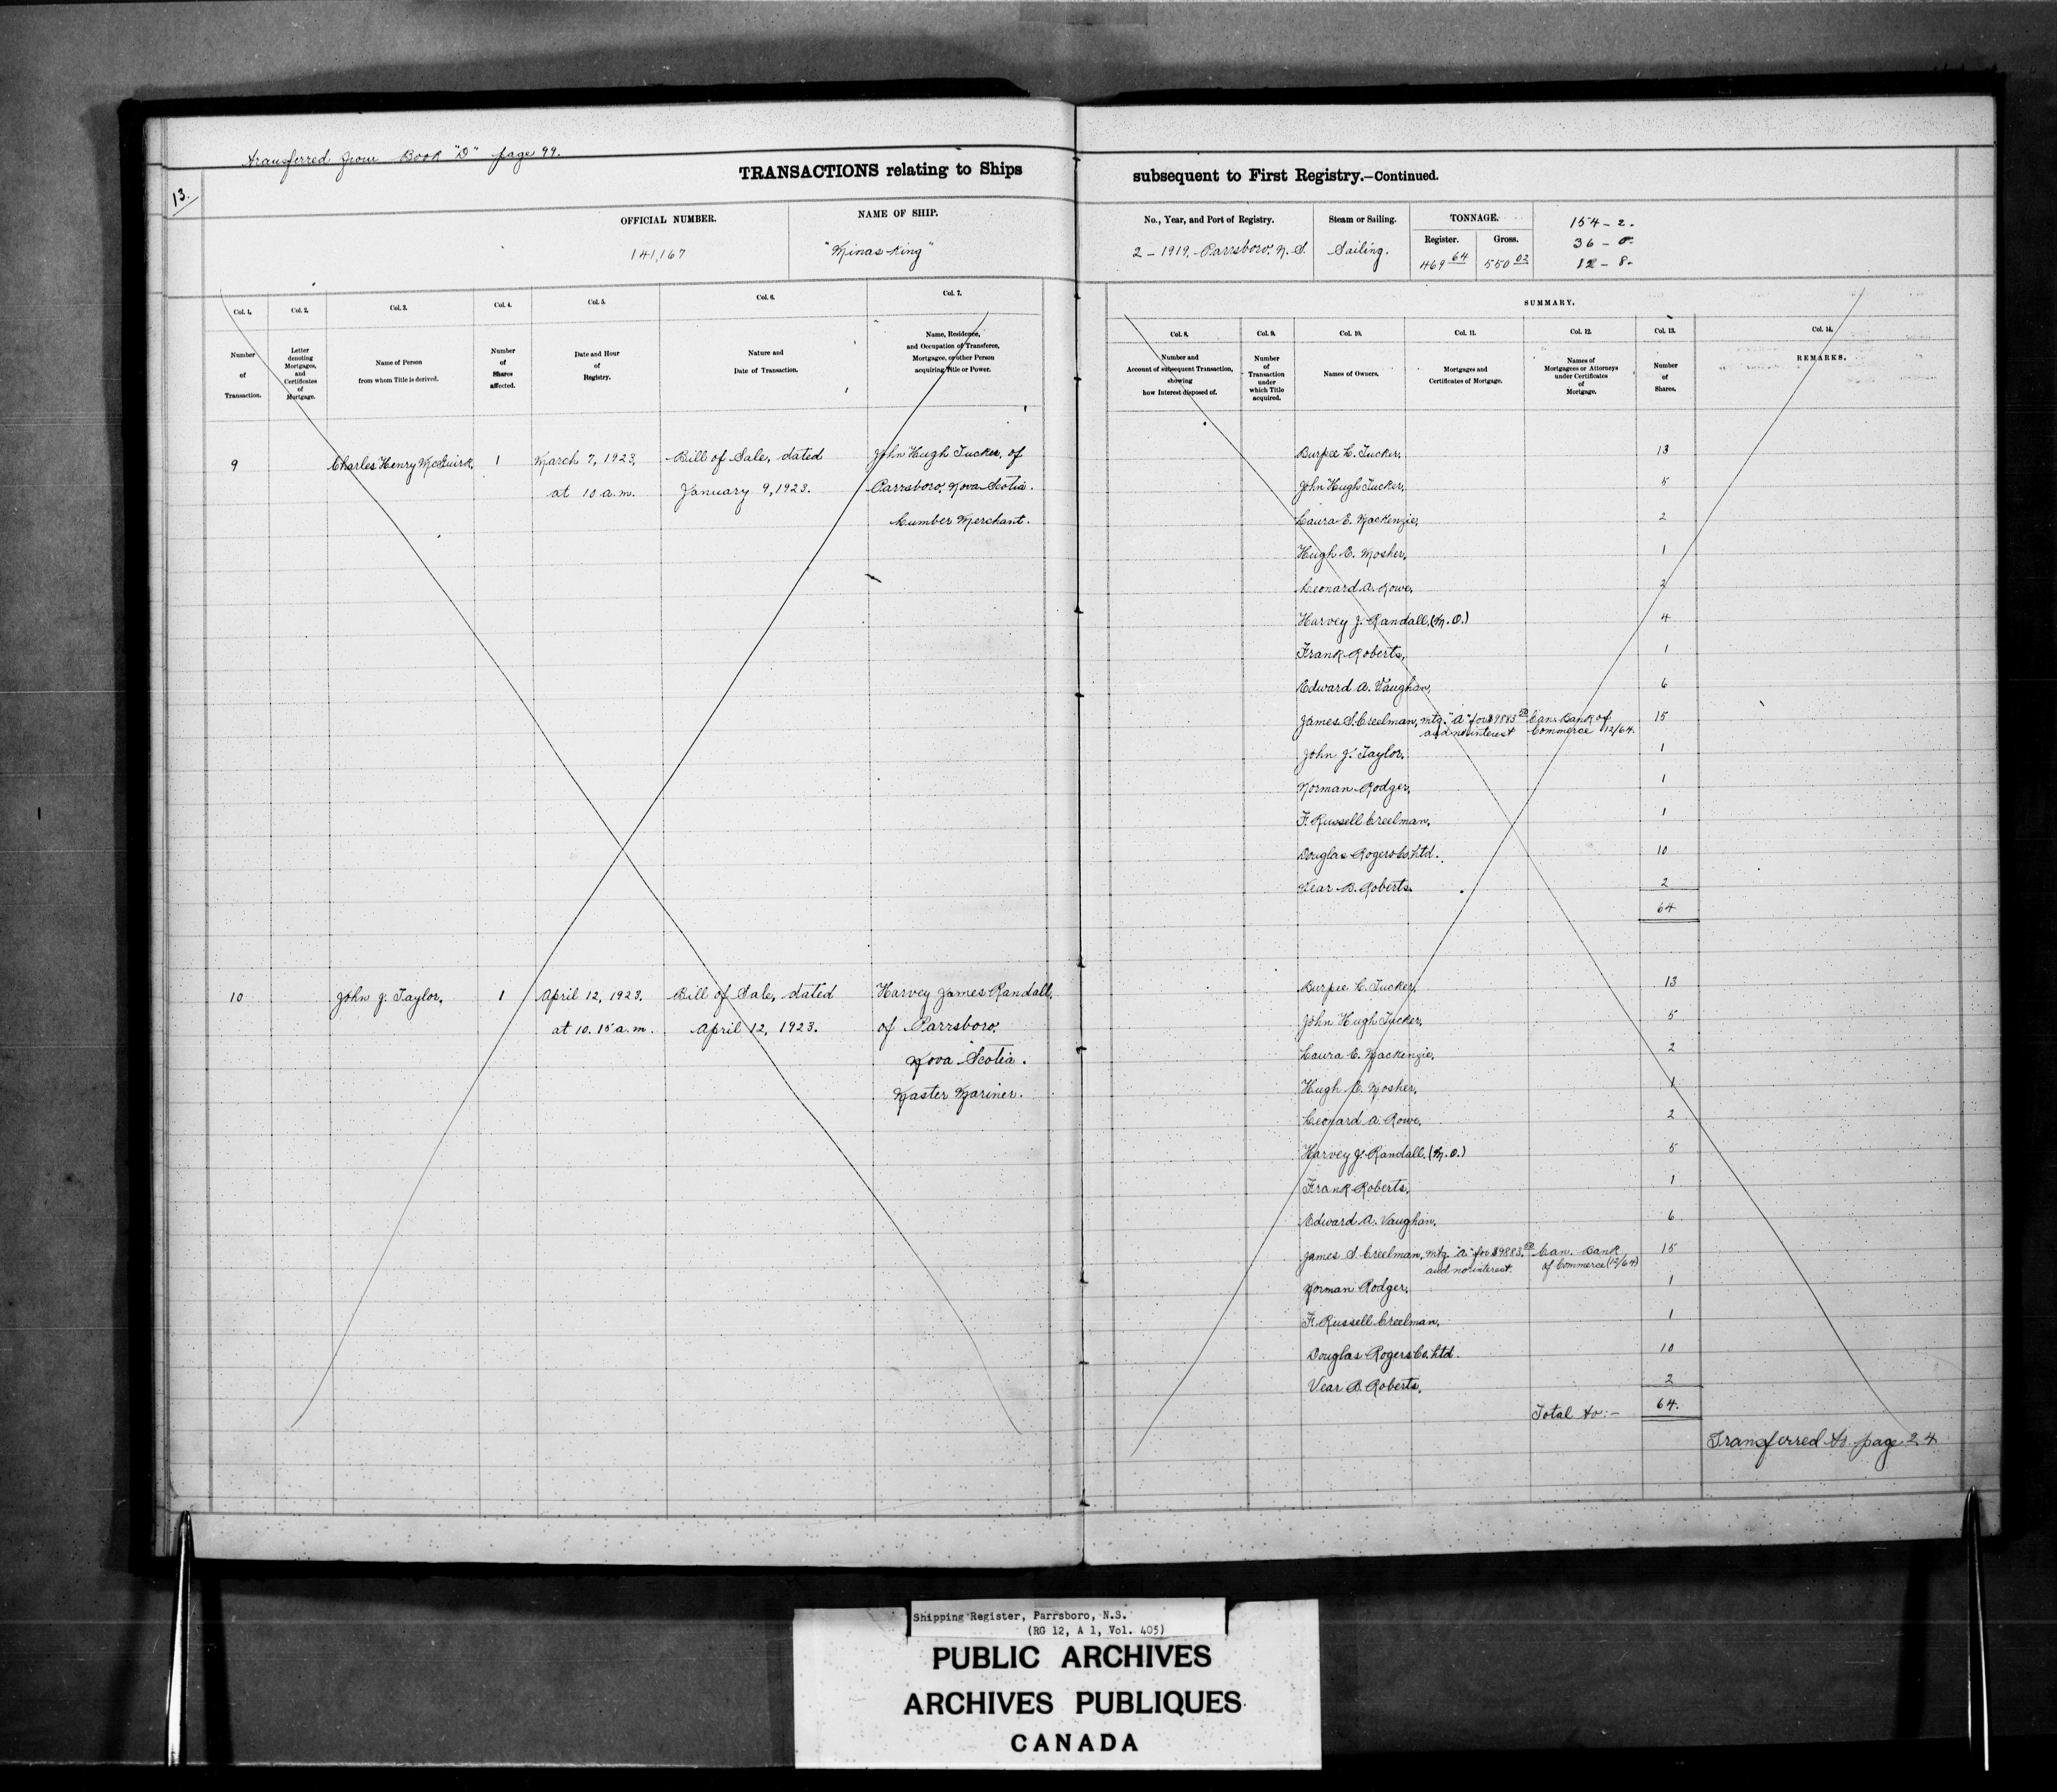 transferred from Book "D" page 99.
13.
TRANSACTIONS relating to Ships subsequent to First Registry.—Continued.
OFFICIAL NUMBER.
141,167
NAME OF SHIP.
"Minas King"
No., Year, and Port of Registry.
2 - 1919. Parrsboro, N.S.
Steam or Sailing.
Sailing.
TONNAGE.
Register.
469 64
Gross.
550 02
154 - 2.
36 - 0.
12 - 8.
Col. 1.
Number
of
Transaction.
Col. 2.
Letter
denoting
Mortgages,
and
Certificates
of
Mortgage.
Col. 3.
Name of Person
from whom Title is derived.
Col. 4.
Number
of
Shares
affected.
Col. 5.
Date and Hour
of
Registry.
Col. 6.
Nature and
Date of Transaction.
Col. 7.
Name, Residence,
and Occupation of Transferee,
Mortgagee, or other Person
acquiring Title or Power.
SUMMARY.
Col. 8.
Number and
Account of subsequent Transaction,
showing
how Interest disposed of.
Col. 9.
Number
of
Transaction
under
which Title
acquired.
Col. 10.
Names of Owners.
Col. 11.
Mortgages and
Certificates of Mortgage.
Col. 12.
Names of
Mortgagees or Attorneys
under Certificates
of
Mortgage.
Col. 13.
Number
of
Shares.
Col. 14.
REMARKS.
9 Charles Henry McGuirk, 1 March 7, 1923, Bill of Sale, dated John Hugh Tucker, of
at 10 a.m. January 9, 1923. Parrsboro, Nova Scotia.
Lumber Merchant.
Burpee L. Tucker, 13
John Hugh Tucker, 5
Laura E. Mackenzie, 2
Hugh E. Mosher, 1
Leonard A. Rowe, 2
Harvey J. Randall, (M.O.) 4
Frank Roberts, 1
Edward A. Vaughan, 6
James S. Creelman, mtg. "A" for $9883 Can. Bank of 15
and no interest Commerce 12/64.
John J. Taylor, 1
Norman Rodger, 1
F. Russell Creelman, 1
Douglas Rogers Co. Ltd. 10
Vear B. Roberts. 2
64
10 John J. Taylor, 1 April 12, 1923. Bill of Sale, dated Harvey James Randall,
at 10.15 a.m. April 12, 1923. of Parrsboro,
Nova Scotia.
Master Mariner.
Burpee L. Tucker, 13
John Hugh Tucker, 5
Laura E. Mackenzie, 2
Hugh E. Mosher, 1
Leonard A. Rowe, 2
Harvey J. Randall, (M.O.) 5
Frank Roberts, 1
Edward A. Vaughan, 6
James S. Creelman, mtg. "A" for $9883. Can. Bank 15
and no interest. of Commerce (12/64)
Norman Rodger, 1
F. Russell Creelman, 1
Douglas Rogers Co. Ltd. 10
Vear B. Roberts, 2
Total to:- 64.
Transferred to page 24
Shipping Register, Parrsboro, N.S.
(RG 12, A 1, Vol. 405)
PUBLIC ARCHIVES
ARCHIVES PUBLIQUES
CANADA